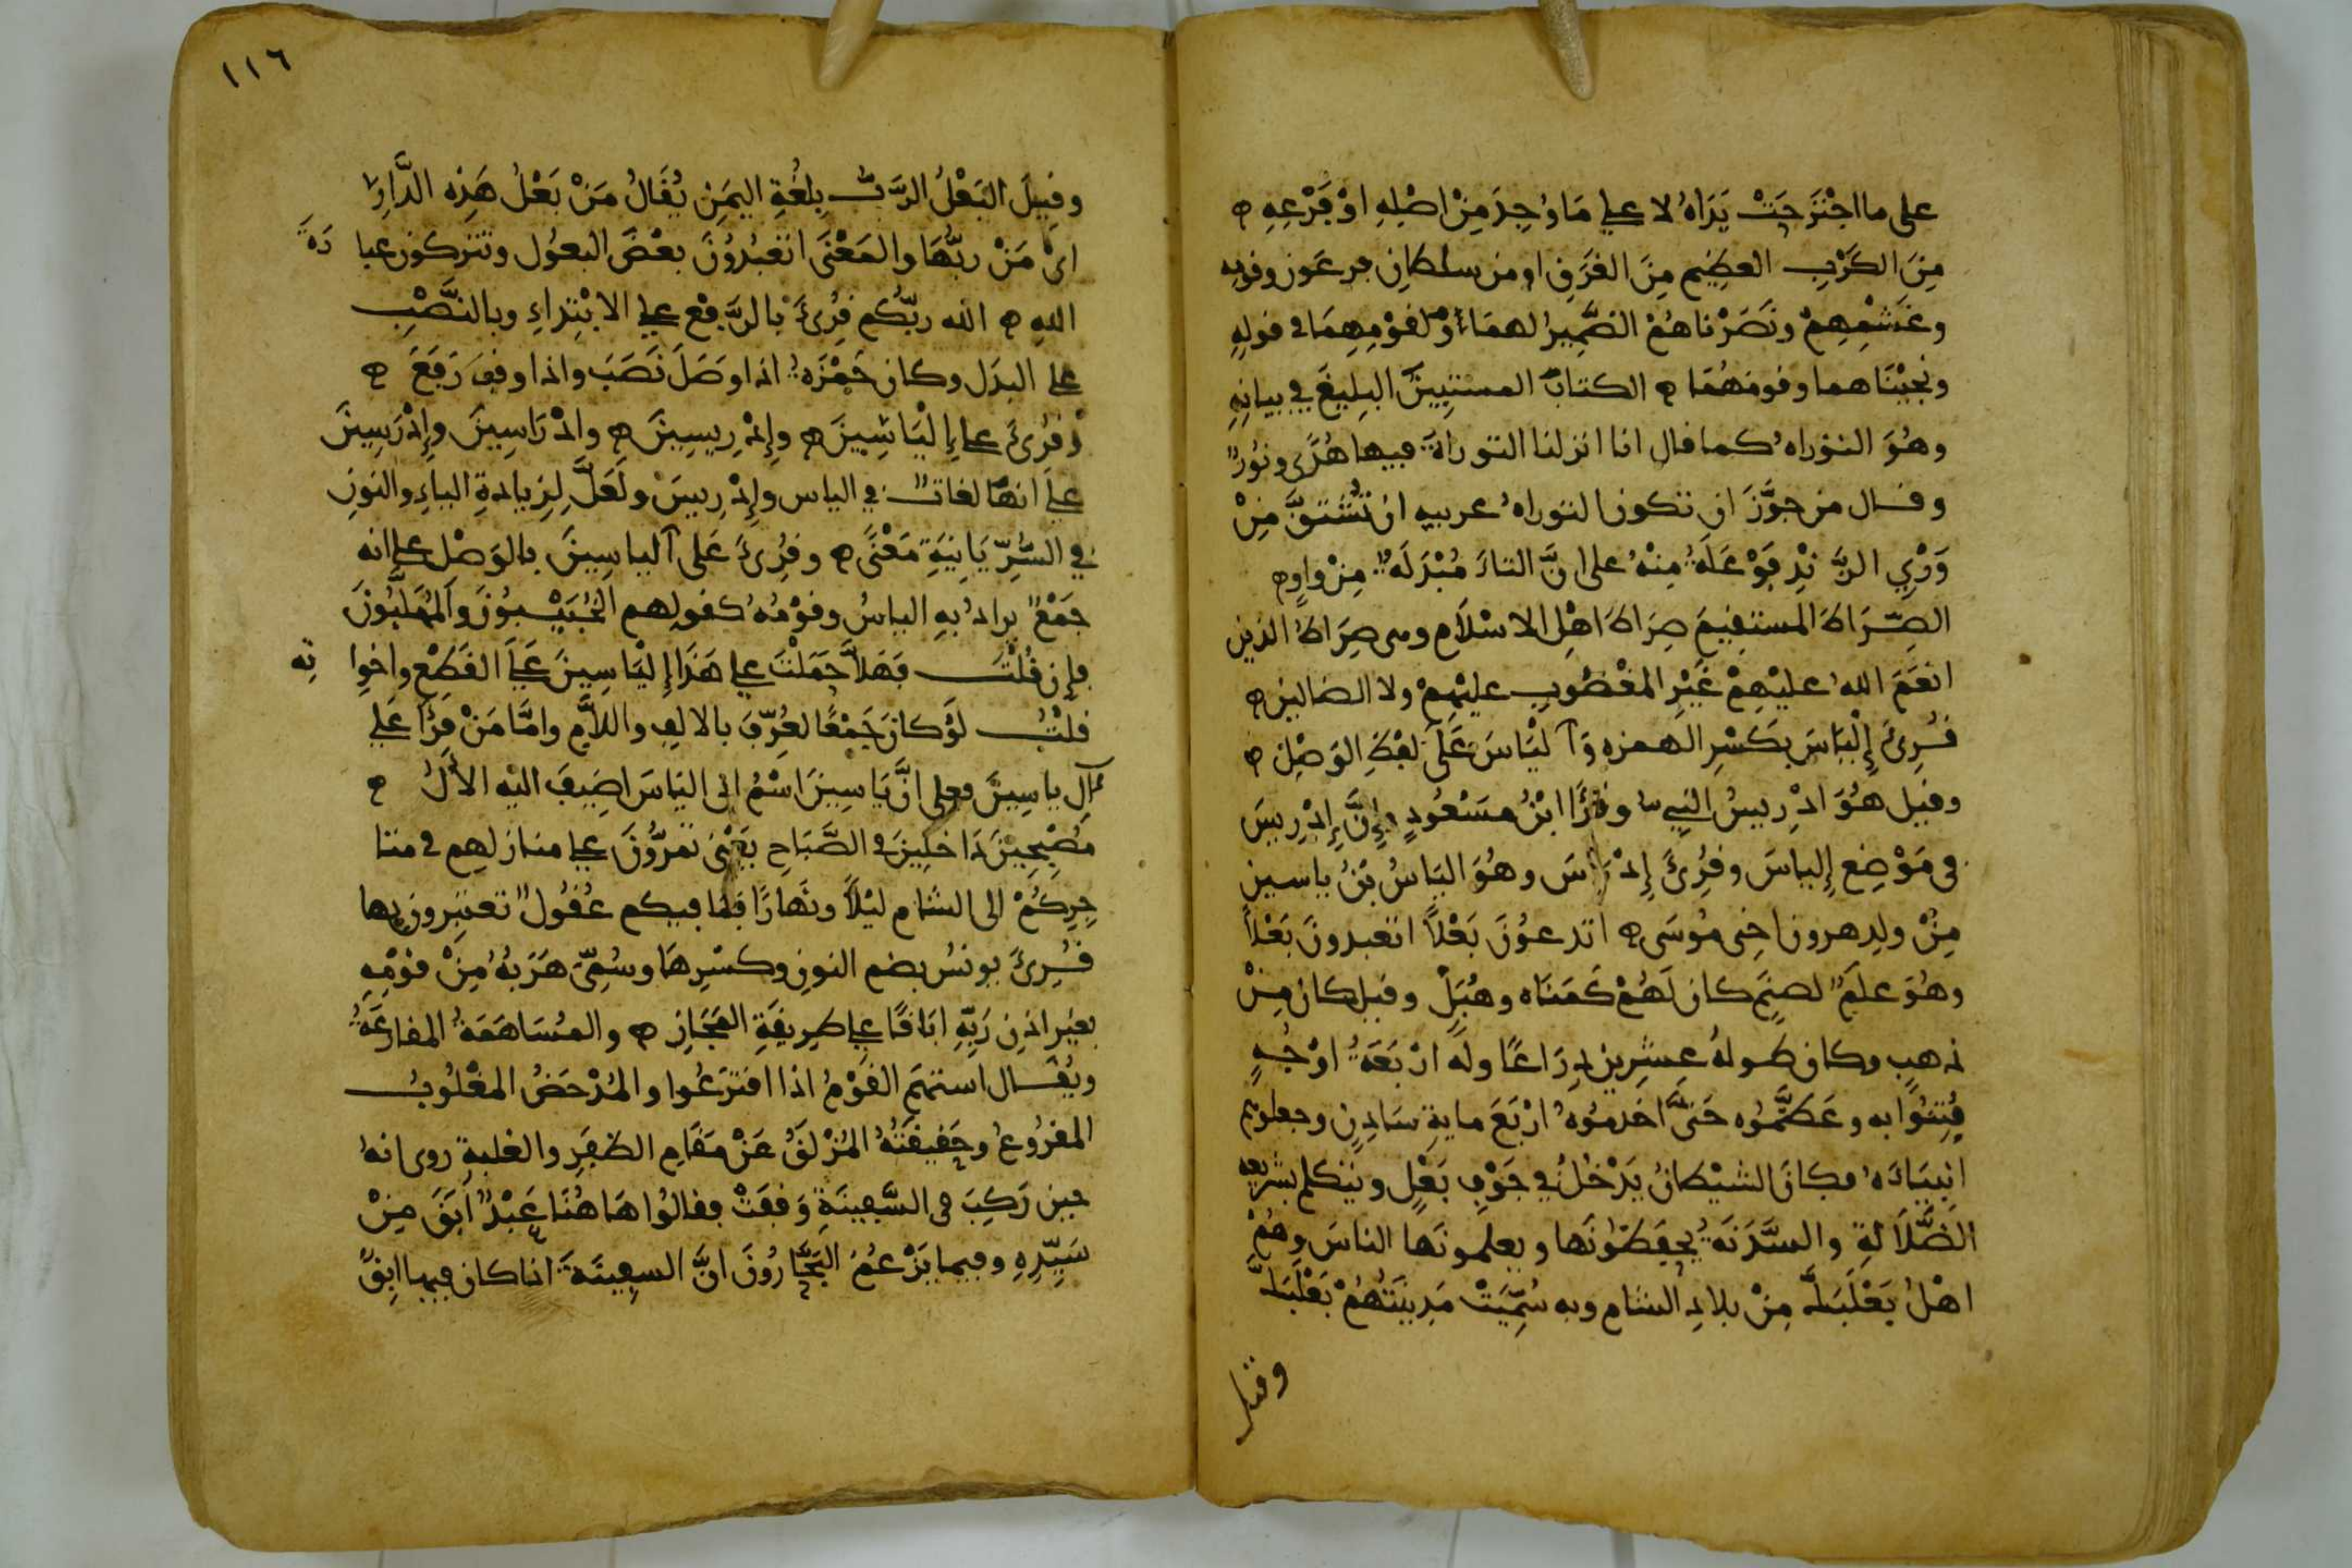 على ما اجترحت يداه لا على ما وجد من اصله او فرعه ه
من الكرب العظيم من الغرق او من سلطان فرعون وقومه
وغشمهم ونصرناهم الضمير لهما ولقومهما في قوله
ونجيناهما وقومهما ه الكتاب المستبين البليغ في بيانه
وهو التوراه كما قال انا انزلنا التوراة فيها هدى ونور
وقال من جوز ان تكون التوراه عربيه ان تشتق من
وري الزند فوعلة منه على ان التاء مبدلة من واو ه
الصراط المستقيم صراط اهل الاسلام وهي صراط الذين
انعم الله عليهم غير المغضوب عليهم ولا الضالين ه
قرئ إلياس بكسر الهمزه وآلياس على لفظ الوصل ه
وقيل هو ادريس النبي وقرأ ابن مسعود وإن إدريس
في موضع إلياس وقرئ إدراس وهو الياس بن ياسين
من ولد هرون اخي موسى ه اتدعون بعلا اتعبدون بعلا
وهو علم لصنم كان لهم كمناه وهبل وقيل كان من
ذهب وكان طوله عشرين ذراعا وله اربعة اوجه
فتنوا به وعظموه حتى اخدموه اربع ماية سادن وجعلوهم
انبياءه فكان الشيطان يدخل في جوف بعل ويتكلم بشريعه
الضلالة والسدنة يحفظونها ويعلمونها الناس وهم
اهل بعلبك من بلاد الشام وبه سميت مدينتهم بعلبك
وقيل
١١٦
وقيل البعل الرب بلغة اليمن يقال من بعل هذه الدار
اي من ربها والمعنى اتعبدون بعض البعول وتتركون عبادة
الله ه الله ربكم قرئ بالرفع على الابتداء وبالنصب
على البدل وكان حمزة اذا وصل نصب واذا وقف رفع ه
وقرئ على إلياسين ه وإدريسين ه وادراسين وإدرسين
على انها لغات في الياس وإدريس ولعل لزيادة الياء والنون
في السريانية معنى ه وقرئ على آلياسين بالوصل على انه
جمع يراد به الياس وقومه كقولهم الخبيبون والمهلبون
فإن قلت فهلا حملت على هذا إلياسين على القطع واخواته
قلت لو كان جمعا لعرف بالالف واللام واما من قرأ على
آل ياسين فعلى ان ياسين اسم ابي الياس اضيف اليه الآل ه
مصبحين داخلين في الصباح يعني تمرون على منازلهم في متا
جركم الى الشام ليلا ونهارا فما فيكم عقول تعتبرون بها
قرئ يونس بضم النون وكسرها وسمي هربه من قومه
بغير اذن ربه اباقا على طريقة المجاز ه والمساهمة المقارعة
ويقال استهم القوم اذا اقترعوا والمدحض المغلوب
المقروع وحقيقته المزلق عن مقام الظفر والغلبة روى انه
حين ركب في السفينة وقفت فقالوا هاهنا عبد ابق من
سيده وفيما يزعم البحارون ان السفينة اذا كان فيها ابق